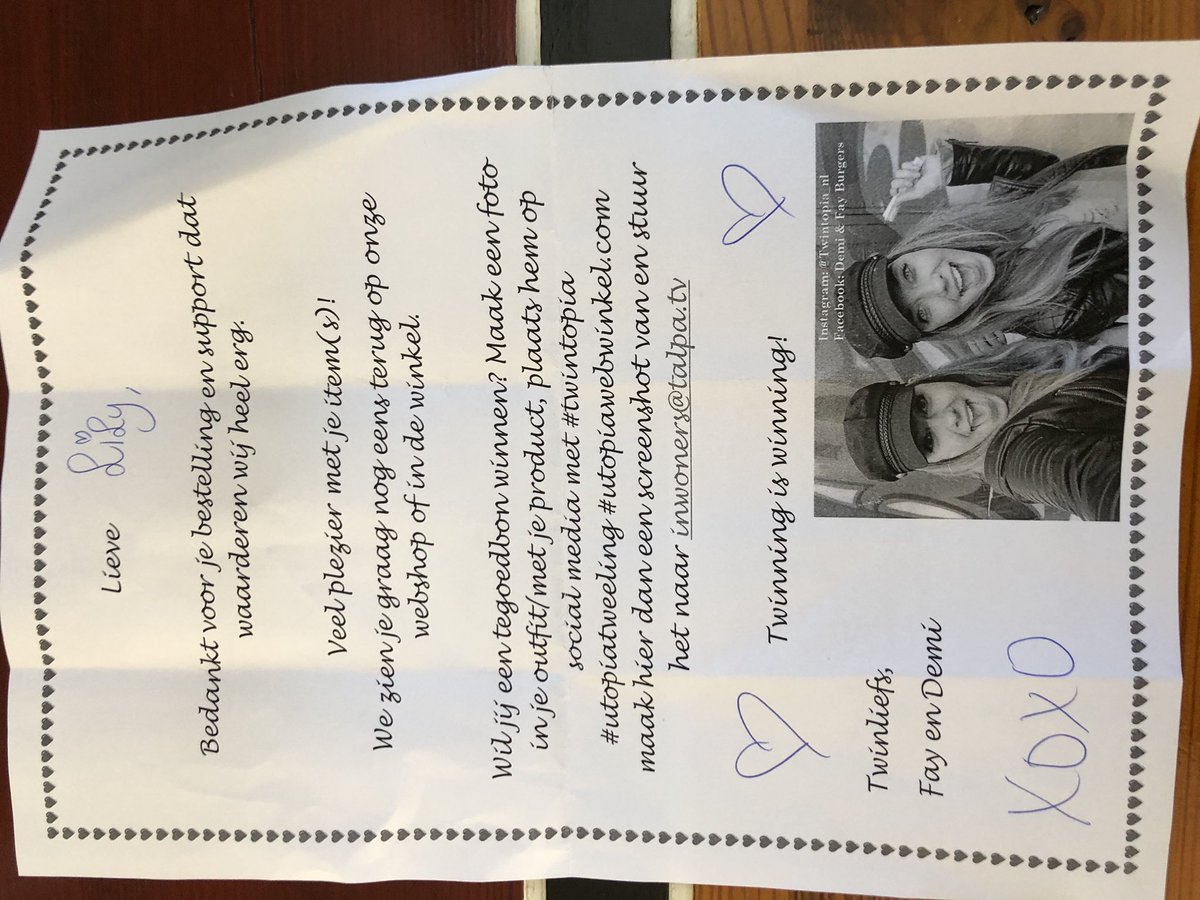 Lieve Lidy,
Bedankt voor je bestelling en support dat
waarderen wij heel erg.
Veel plezier met je item(s)!
We zien je graag nog eens terug op onze
webshop of in de winkel.
Wil jij een tegoedbon winnen? Maak een foto
in je outfit/met je product, plaats hem op
social media met #twintopia
#utopiatweeling #utopiawebwinkel.com
maak hier dan een screenshot van en stuur
het naar inwoners@talpa.tv
Twinning is winning!
Twinliefs,
Fay en Demi
XOXO
Instagram: @Twintopia_nl
Facebook: Demi & Fay Burgers